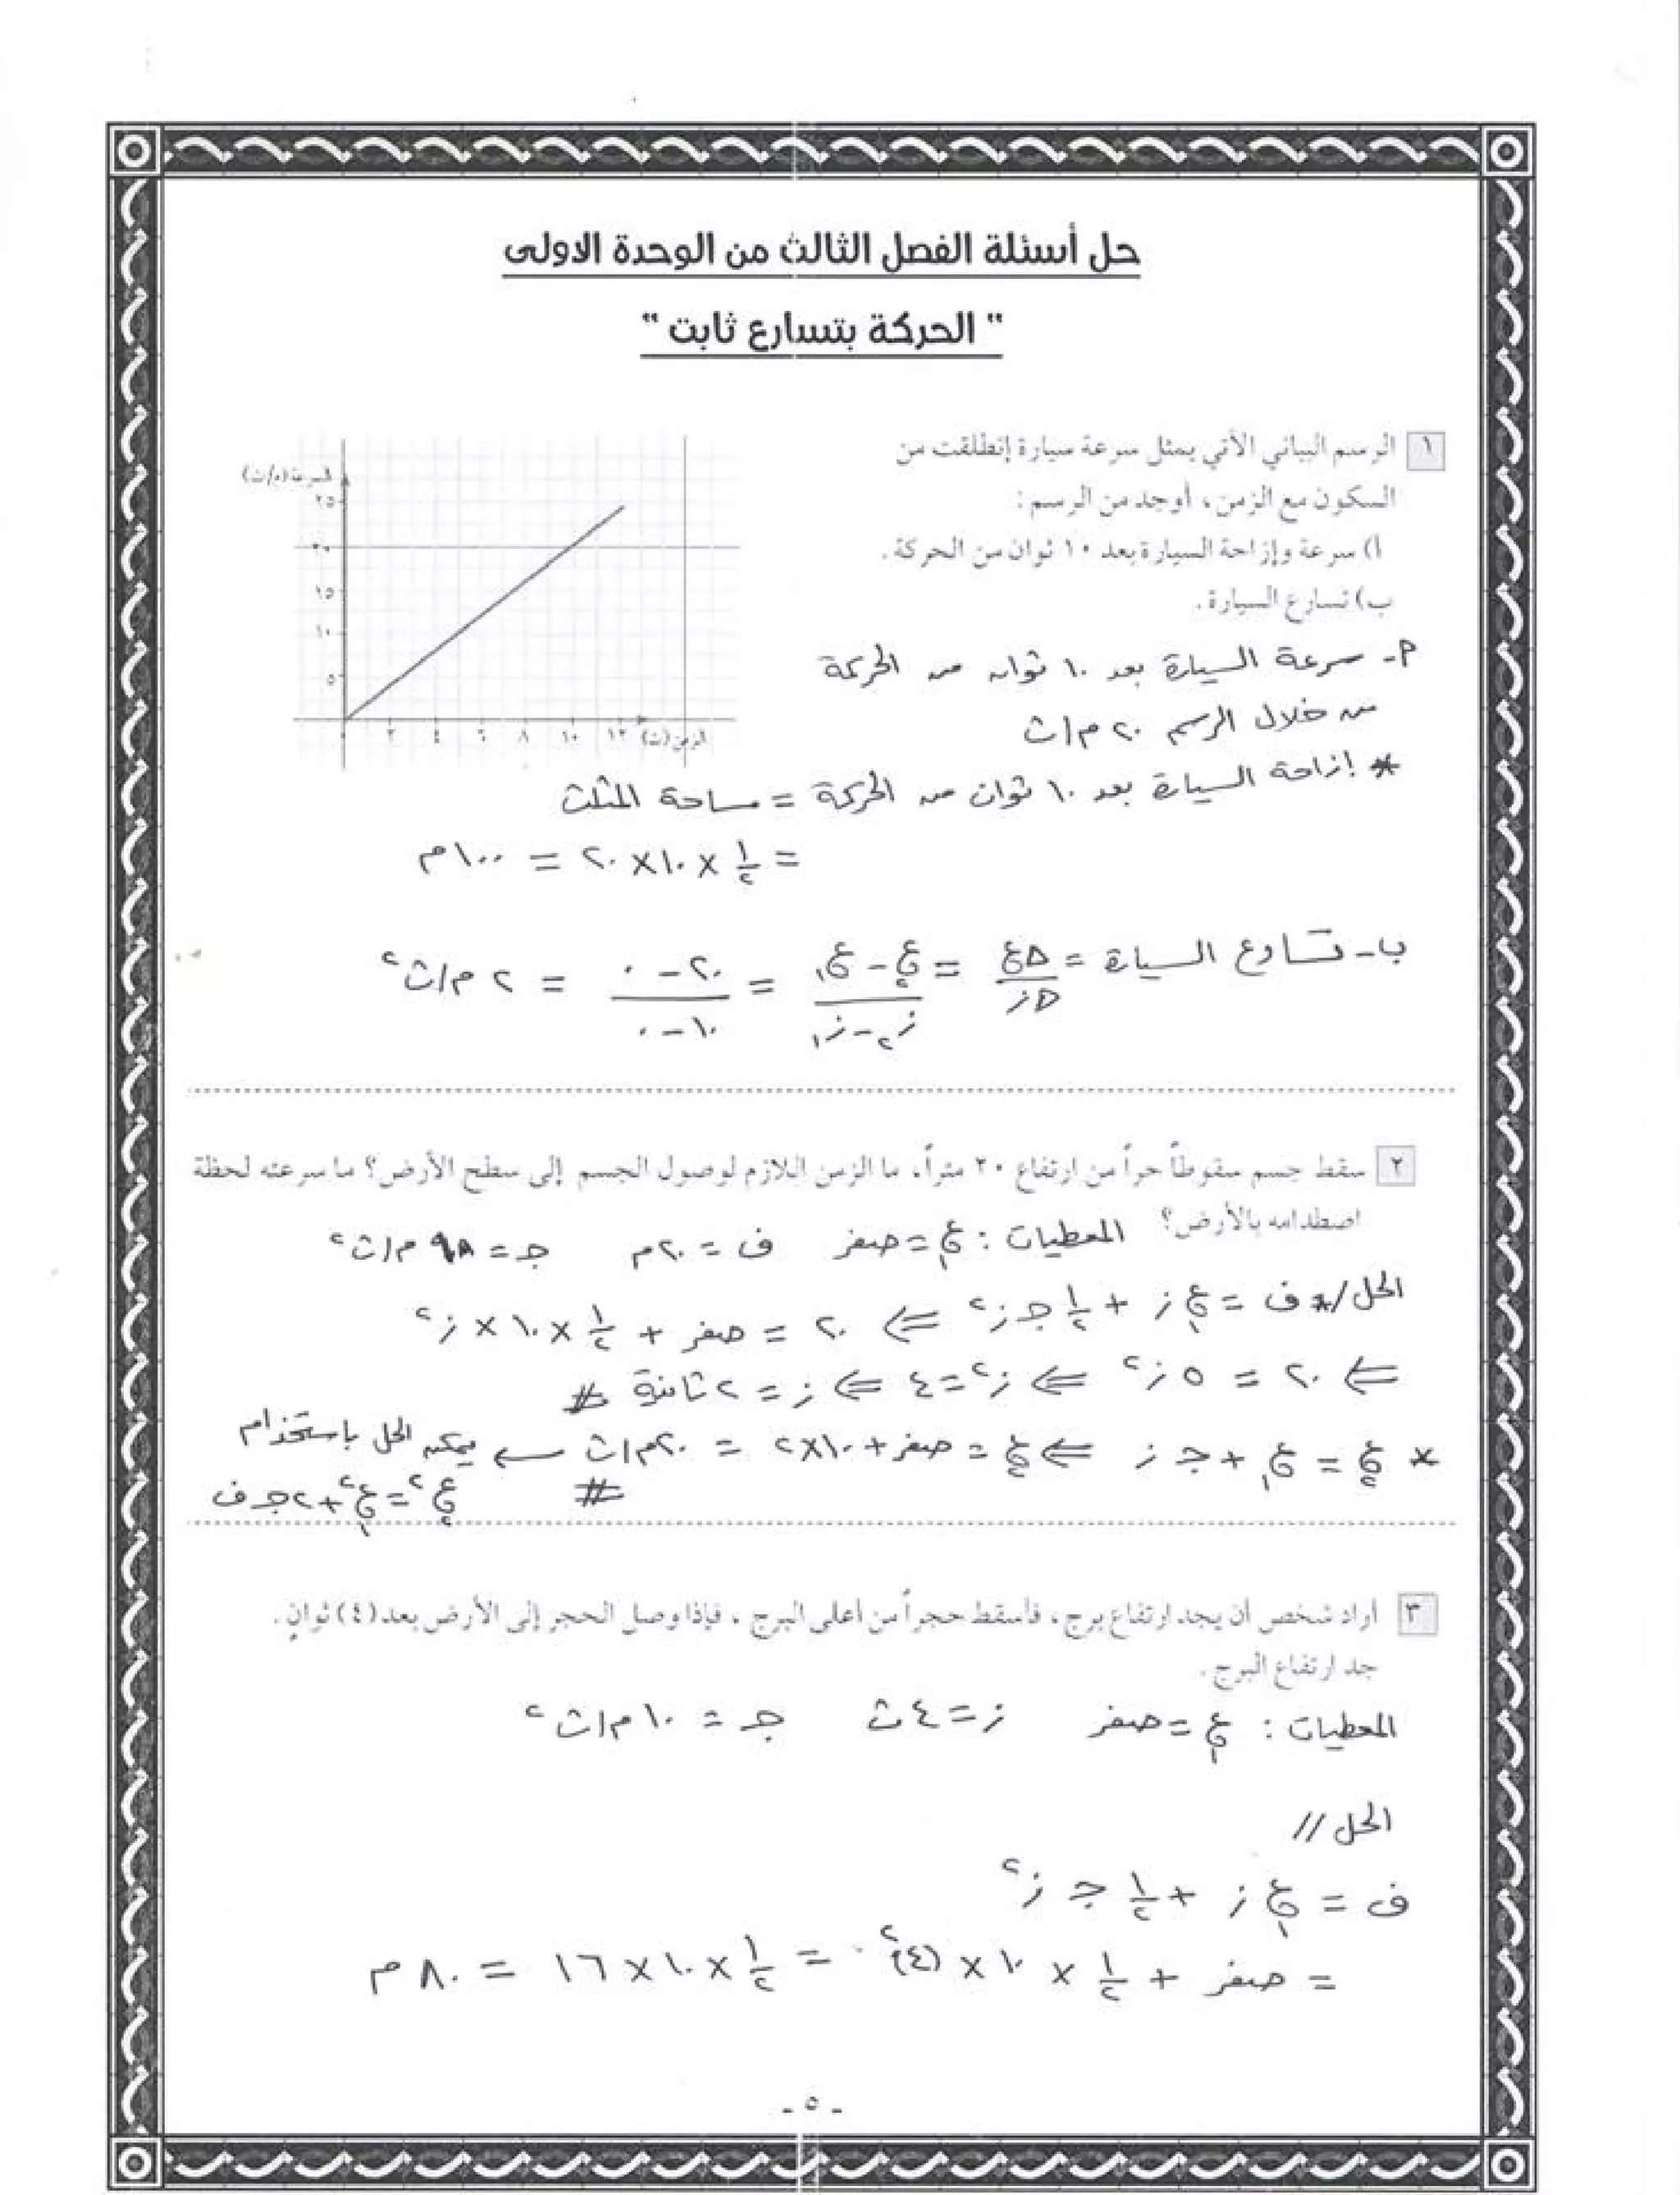 حل أسئلة الفصل الثالث من الوحدة الاولى
" الحركة بتسارع ثابت "
١ الرسم البياني الآتي يمثل سرعة سيارة إنطلقت من
السكون مع الزمن، أوجد من الرسم:
أ) سرعة وإزاحة السيارة بعد ١٠ ثوان من الحركة.
ب) تسارع السيارة.
السرعة (م/ث)
٢٥
٢٠
١٥
١٠
٥
٢ ٤ ٦ ٨ ١٠ ١٢ الزمن (ث)
أ- سرعة السيارة بعد ١٠ ثوان من الحركة
من خلال الرسم ٢٠ م/ث
* إزاحة السيارة بعد ١٠ ثوان من الحركة = مساحة المثلث
= ١/٢ × ١٠ × ٢٠ = ١٠٠ م
ب- تسارع السيارة = Δع/Δز = (ع٢ - ع١)/(ز٢ - ز١) = (٢٠ - ٠)/(١٠ - ٠) = ٢ م/ث²
٢ سقط جسم سقوطاً حراً من ارتفاع ٢٠ متراً. ما الزمن اللازم لوصول الجسم إلى سطح الأرض؟ ما سرعته لحظة
اصطدامه بالأرض؟ المعطيات: ع١ = صفر ف = ٢٠ م جـ = ٩٨ م/ث²
الحل /* ف = ع١ ز + ١/٢ جـ ز² ⇐ ٢٠ = صفر + ١/٢ × ١٠ × ز²
⇐ ٢٠ = ٥ ز² ⇐ ز² = ٤ ⇐ ز = ٢ ثانية #
* ع٢ = ع١ + جـ ز ⇐ ع٢ = صفر + ١٠ × ٢ = ٢٠ م/ث ← يمكن الحل باستخدام
# ع٢² = ع١² + ٢ جـ ف
٣ أراد شخص أن يجد ارتفاع برج، فأسقط حجراً من أعلى البرج، فإذا وصل الحجر إلى الأرض بعد (٤) ثوانٍ.
جد ارتفاع البرج.
المعطيات: ع١ = صفر ز = ٤ ث جـ = ١٠ م/ث²
الحل //
ف = ع١ ز + ١/٢ جـ ز²
= صفر + ١/٢ × ١٠ × (٤)² = ١/٢ × ١٠ × ١٦ = ٨٠ م
- ٥ -